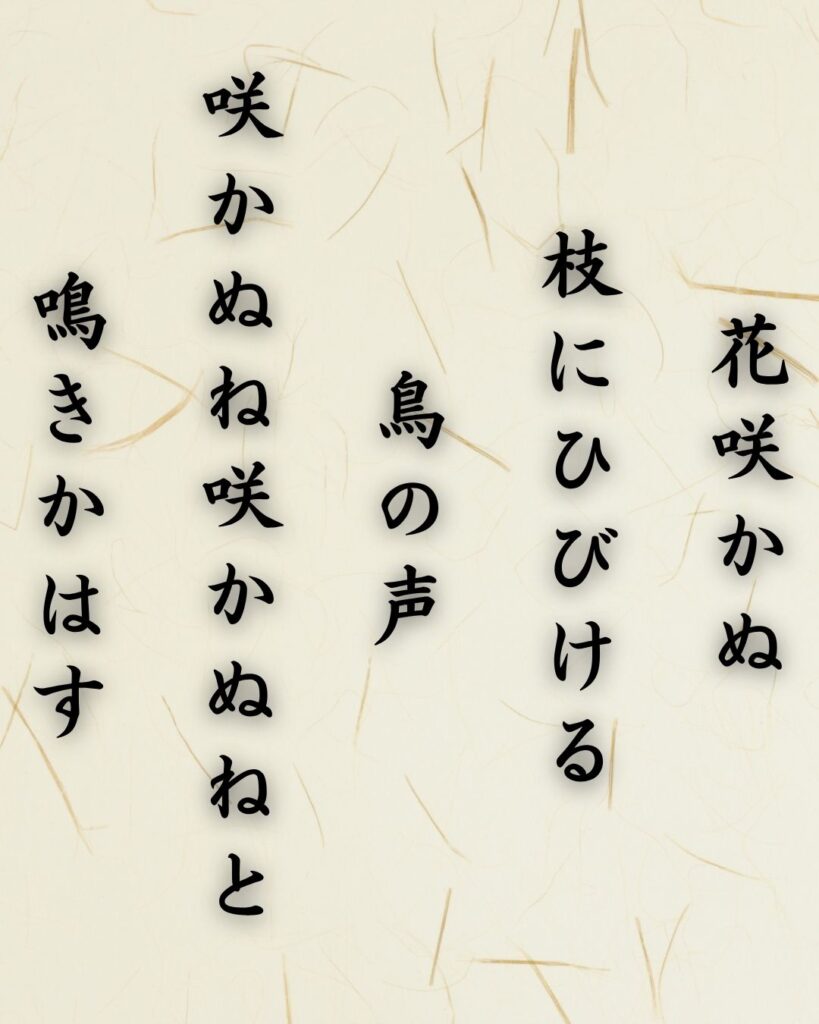 花咲かぬ
枝にひびける
鳥の声
咲かぬね咲かぬねと
鳴きかはす